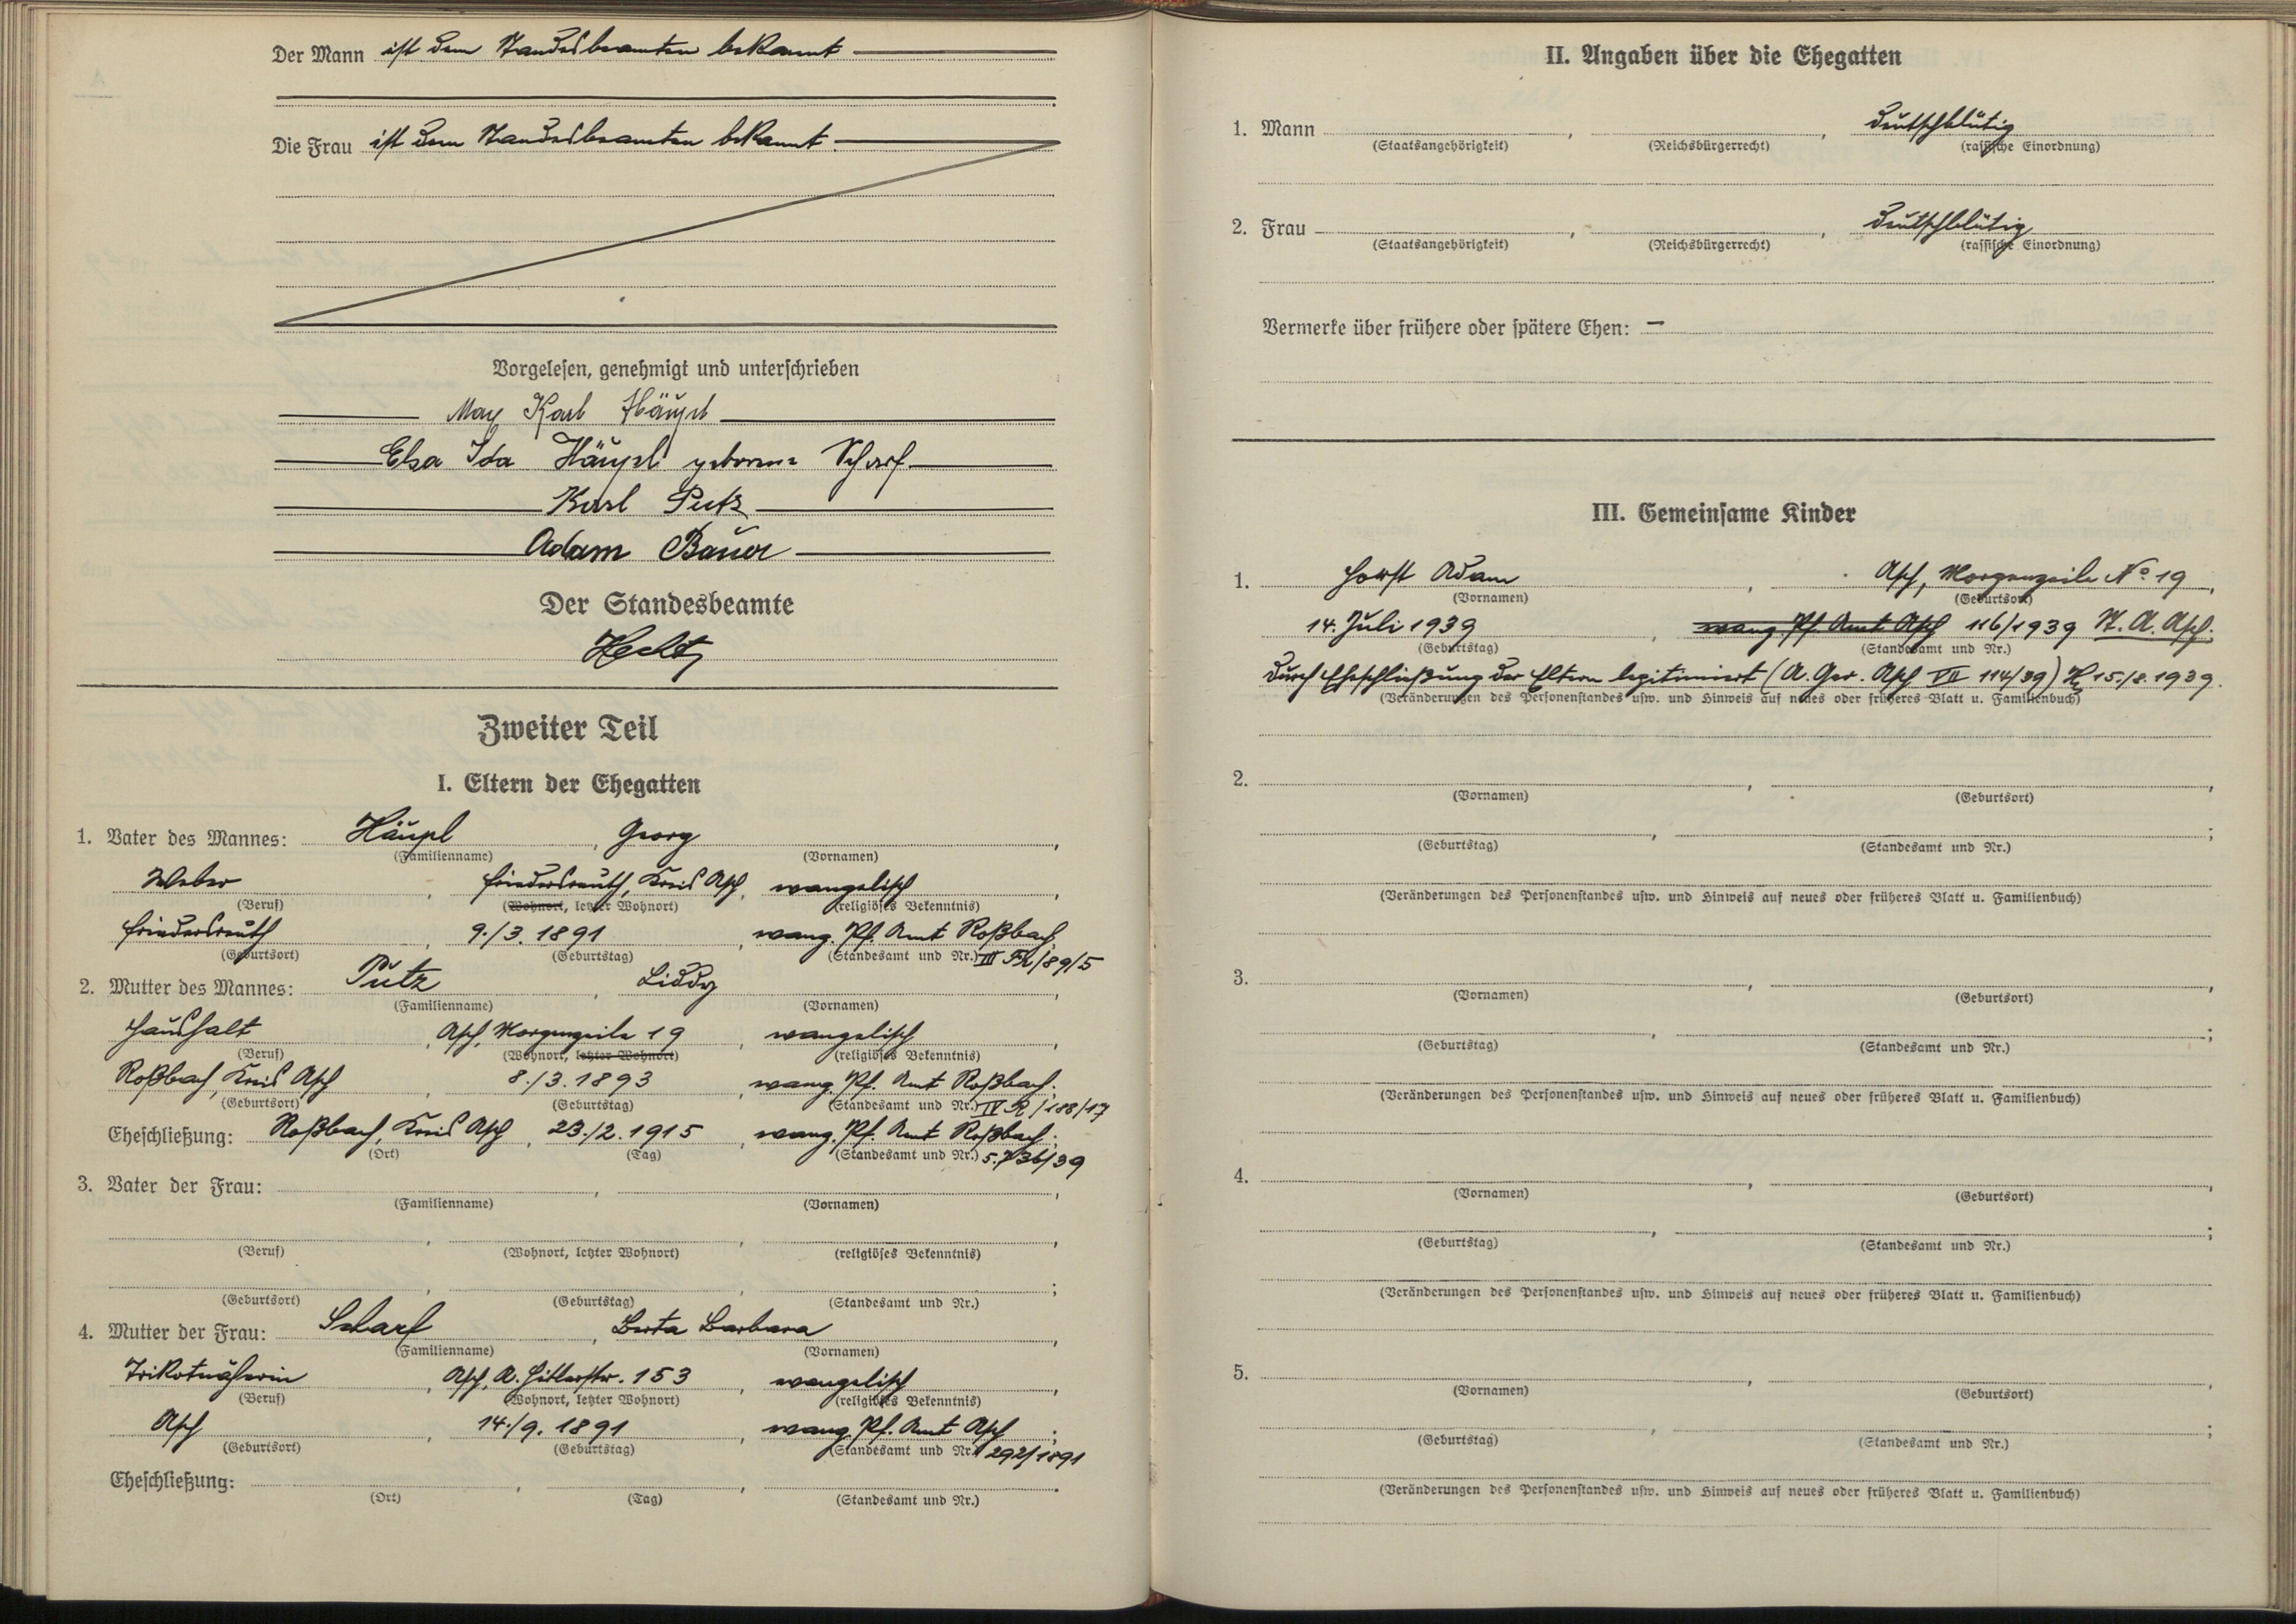 Der Mann ist dem Standesbeamten bekannt
Die Frau ist dem Standesbeamten bekannt.
Vorgelesen, genehmigt und unterschrieben
Max Karl Häupl
Elsa Ida Häupl geborene Scharf
Karl Putz
Adam Bauer
Der Standesbeamte
Zweiter Teil
I. Eltern der Ehegatten
1. Vater des Mannes: Häupl, Georg,
(Familienname) (Vornamen)
Weber, Friedersreuth, Kreis Asch, evangelisch,
(Beruf) (Wohnort, letzter Wohnort) (religiöses Bekenntnis)
Friedersreuth, 9./3. 1891, evang. Pf. Amt Roßbach;
(Geburtsort) (Geburtstag) (Standesamt und Nr.) III Fr/89/5
2. Mutter des Mannes: Putz, Liddy,
(Familienname) (Vornamen)
Haushalt, Asch, Morgenzeile 19, evangelisch,
(Beruf) (Wohnort, letzter Wohnort) (religiöses Bekenntnis)
Roßbach, Kreis Asch, 8./3. 1893, evang. Pf. Amt Roßbach;
(Geburtsort) (Geburtstag) (Standesamt und Nr.) IV R/188/17
Eheschließung: Roßbach, Kreis Asch, 23./2. 1915, evang. Pf. Amt Roßbach;
(Ort) (Tag) (Standesamt und Nr.)
3. Vater der Frau: , ,
(Familienname) (Vornamen)
(Beruf) (Wohnort, letzter Wohnort) (religiöses Bekenntnis)
(Geburtsort) (Geburtstag) (Standesamt und Nr.)
4. Mutter der Frau: Scharf, Berta Barbara,
(Familienname) (Vornamen)
Trikotnäherin, Asch, A. Hitlerstr. 153, evangelisch,
(Beruf) (Wohnort, letzter Wohnort) (religiöses Bekenntnis)
Asch, 14./9. 1891, evang. Pf. Amt Asch;
(Geburtsort) (Geburtstag) (Standesamt und Nr.) 292/1891
Eheschließung: , , .
(Ort) (Tag) (Standesamt und Nr.)
II. Angaben über die Ehegatten
1. Mann , , deutschblütig
(Staatsangehörigkeit) (Reichsbürgerrecht) (rassische Einordnung)
2. Frau , , deutschblütig
(Staatsangehörigkeit) (Reichsbürgerrecht) (rassische Einordnung)
Vermerke über frühere oder spätere Ehen: –
III. Gemeinsame Kinder
1. Horst Adam, Asch, Morgenzeile No 19,
(Vornamen) (Geburtsort)
14. Juli 1939, evang Pf. Amt Asch 116/1939 St. A. Asch;
(Geburtstag) (Standesamt und Nr.)
durch Eheschließung der Eltern legitimiert (A. Ger. Asch VII 114/39) 15./8. 1939.
(Veränderungen des Personenstandes usw. und Hinweis auf neues oder früheres Blatt u. Familienbuch)
2. , ,
(Vornamen) (Geburtsort)
, ;
(Geburtstag) (Standesamt und Nr.)
(Veränderungen des Personenstandes usw. und Hinweis auf neues oder früheres Blatt u. Familienbuch)
3. , ,
(Vornamen) (Geburtsort)
, ;
(Geburtstag) (Standesamt und Nr.)
(Veränderungen des Personenstandes usw. und Hinweis auf neues oder früheres Blatt u. Familienbuch)
4. , ,
(Vornamen) (Geburtsort)
, ;
(Geburtstag) (Standesamt und Nr.)
(Veränderungen des Personenstandes usw. und Hinweis auf neues oder früheres Blatt u. Familienbuch)
5. , ,
(Vornamen) (Geburtsort)
, ;
(Geburtstag) (Standesamt und Nr.)
(Veränderungen des Personenstandes usw. und Hinweis auf neues oder früheres Blatt u. Familienbuch)